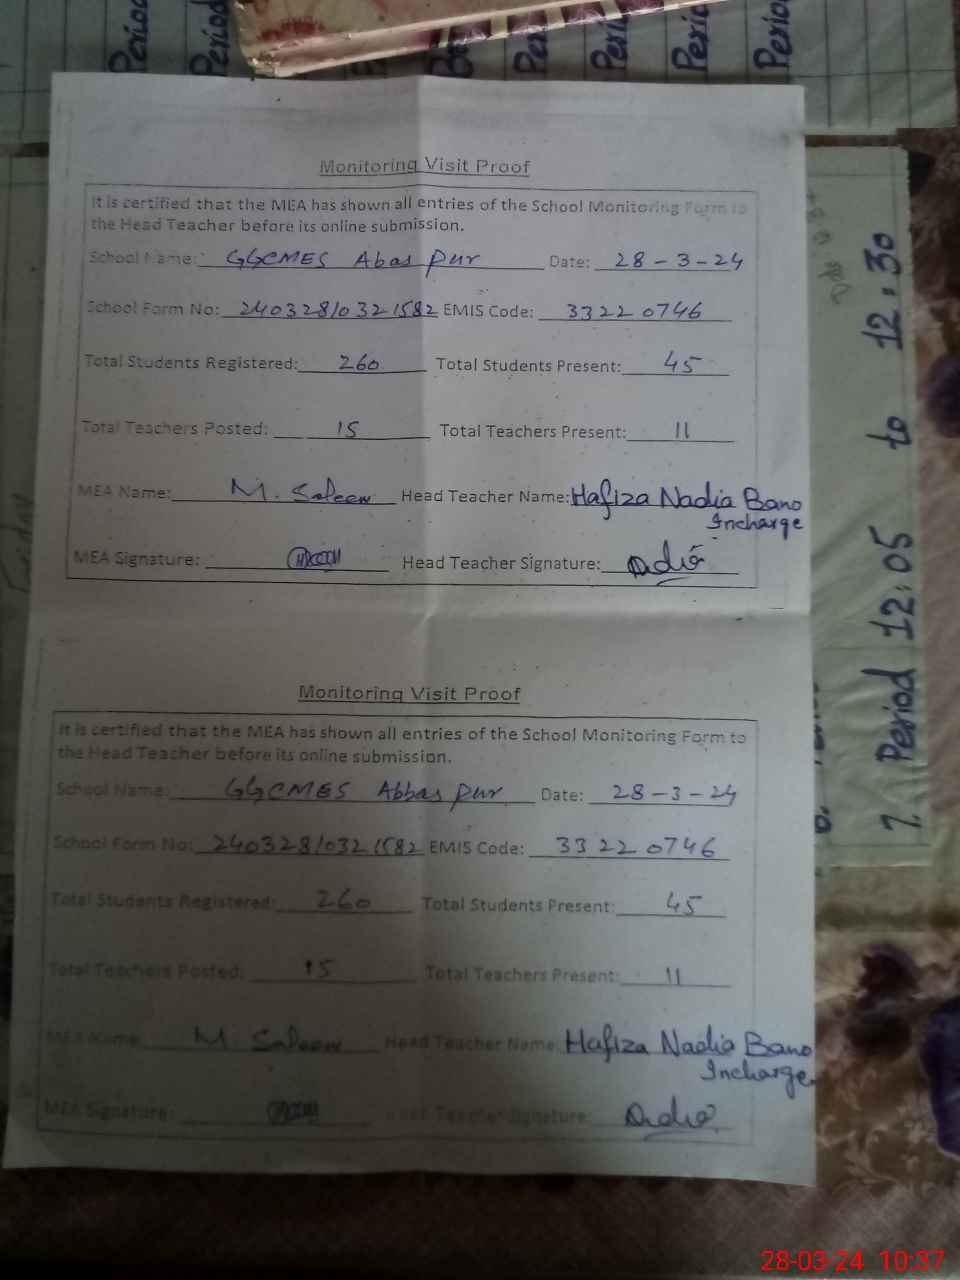 Period
Period
Period
Period
Period
Period
Monitoring Visit Proof
It is certified that the MEA has shown all entries of the School Monitoring Form to
the Head Teacher before its online submission.
School Name: GGCMES Abas pur Date: 28-3-24
School Form No: 24032810321582 EMIS Code: 33220746
Total Students Registered: 260 Total Students Present: 45
Total Teachers Posted: 15 Total Teachers Present: 11
MEA Name: M. Saleem Head Teacher Name: Hafiza Nadia Bano
Incharge
MEA Signature: Head Teacher Signature:
Monitoring Visit Proof
It is certified that the MEA has shown all entries of the School Monitoring Form to
the Head Teacher before its online submission.
School Name: GGCMES Abbas pur Date: 28-3-24
School Form No: 24032810321582 EMIS Code: 33220746
Total Students Registered: 260 Total Students Present: 45
Total Teachers Posted: 15 Total Teachers Present: 11
MEA Name: M. Saleem Head Teacher Name: Hafiza Nadia Bano
Incharge
MEA Signature: Teacher Signature:
7. Period 12:05 to 12:30
28-03-24 10:37